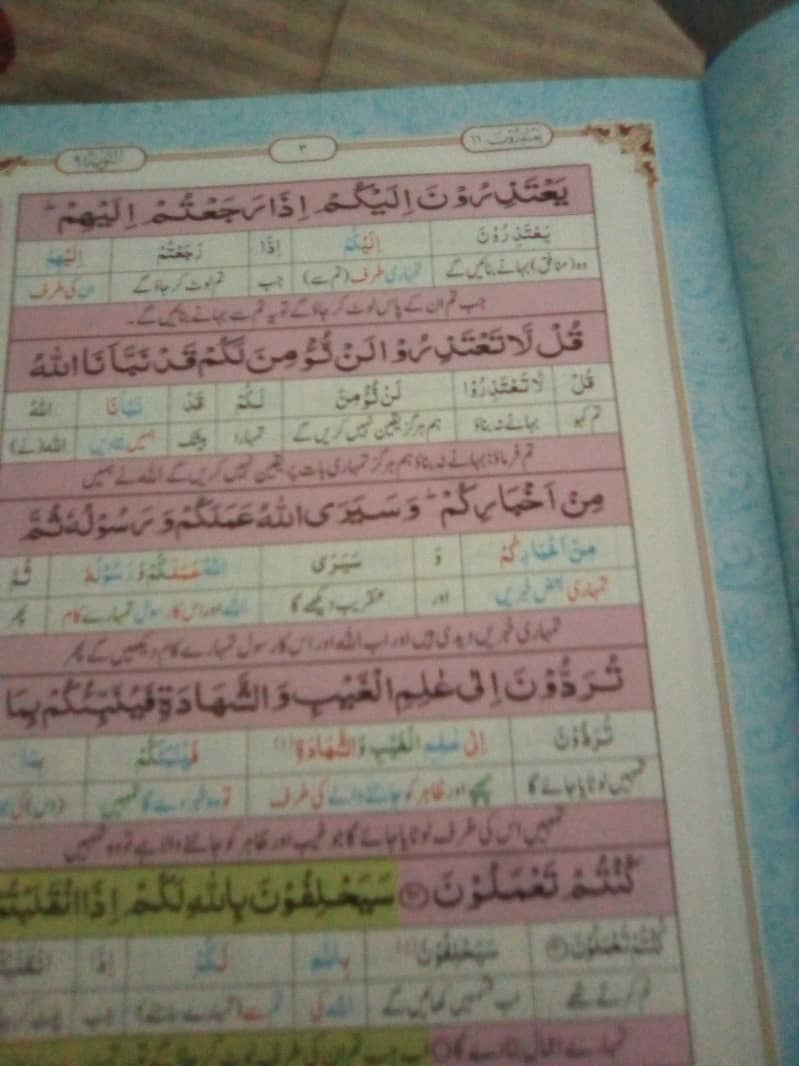 یعتذرون ۱۱ ۳ التوبۃ ۹
یَعْتَذِرُوْنَ اِلَیْكُمْ اِذَا رَجَعْتُمْ اِلَیْهِمْؕ
یَعْتَذِرُوْنَ اِلَیْكُمْ اِذَا رَجَعْتُمْ اِلَیْهِمْ
وہ (منافق) بہانے بنائیں گے تمہاری طرف (تم سے) جب تم لوٹ کر جاؤ گے ان کی طرف
جب تم ان کے پاس لوٹ کر جاؤ گے تو یہ تم سے بہانے بنائیں گے۔
قُلْ لَّا تَعْتَذِرُوْا لَنْ نُّؤْمِنَ لَكُمْ قَدْ نَبَّاَنَا اللّٰهُ
قُلْ لَّا تَعْتَذِرُوْا لَنْ نُّؤْمِنَ لَكُمْ قَدْ نَبَّاَنَا اللّٰهُ
تم کہو بہانے نہ بناؤ ہم ہرگز یقین نہیں کریں گے تمہارا بیشک ہمیں اللہ (نے)
تم فرماؤ: بہانے نہ بناؤ ہم ہرگز تمہاری بات پر یقین نہیں کریں گے اللہ نے ہمیں
مِنْ اَخْبَارِكُمْؕ وَ سَیَرَی اللّٰهُ عَمَلَكُمْ وَ رَسُوْلُهٗ ثُمَّ
مِنْ اَخْبَارِكُمْ وَ سَیَرَی اللّٰهُ عَمَلَكُمْ وَ رَسُوْلُهٗ ثُمَّ
تمہاری بعض خبریں اور عنقریب دیکھے گا اللہ اور اس کا رسول تمہارے کام پھر
تمہاری خبریں دیدی ہیں اور اب اللہ اور اس کا رسول تمہارے کام دیکھیں گے پھر
تُرَدُّوْنَ اِلٰى عٰلِمِ الْغَیْبِ وَ الشَّهَادَةِ فَیُنَبِّئُكُمْ بِمَا
تُرَدُّوْنَ اِلٰى عٰلِمِ الْغَیْبِ وَ الشَّهَادَةِ (۱) فَیُنَبِّئُكُمْ بِمَا
تمہیں لوٹایا جائے گا چھپے اور ظاہر کو جاننے والے کی طرف تو وہ خبر دے گا تمہیں
تمہیں اس کی طرف لوٹایا جائے گا جو غیب اور ظاہر کو جاننے والا ہے تو وہ تمہیں
كُنْتُمْ تَعْمَلُوْنَ سَیَحْلِفُوْنَ بِاللّٰهِ لَكُمْ اِذَا انْقَلَبْتُمْ
كُنْتُمْ تَعْمَلُوْنَ سَیَحْلِفُوْنَ (۱) بِاللّٰهِ لَكُمْ اِذَا
تم کرتے تھے اب قسمیں کھائیں گے اللہ کی تم سے (تمہارے سامنے) جب
تمہارے اعمال بتا دے گا اب جب تم ان کی طرف لوٹ کر جاؤ گے